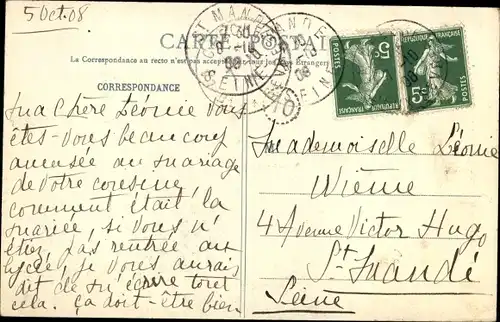 5 Oct. 08
CARTE POSTALE
La Correspondance au recto n'est pas acceptée par tous les Pays Étrangers
CORRESPONDANCE
ST MANDÉ
SEINE
RÉPUBLIQUE FRANÇAISE
POSTES
5c
RÉPUBLIQUE FRANÇAISE
POSTES
5c
Ma chère Léonie vous
êtes-vous beaucoup
amusée au mariage
de votre cousine,
comment était la
mariée, si vous n'
étiez pas rentrée au
lycée, je vous aurais
dit de m'écrire tout
cela. Ça doit-être bien
Mademoiselle Léonie
Wième
4 Avenue Victor Hugo
St Mandé
Seine